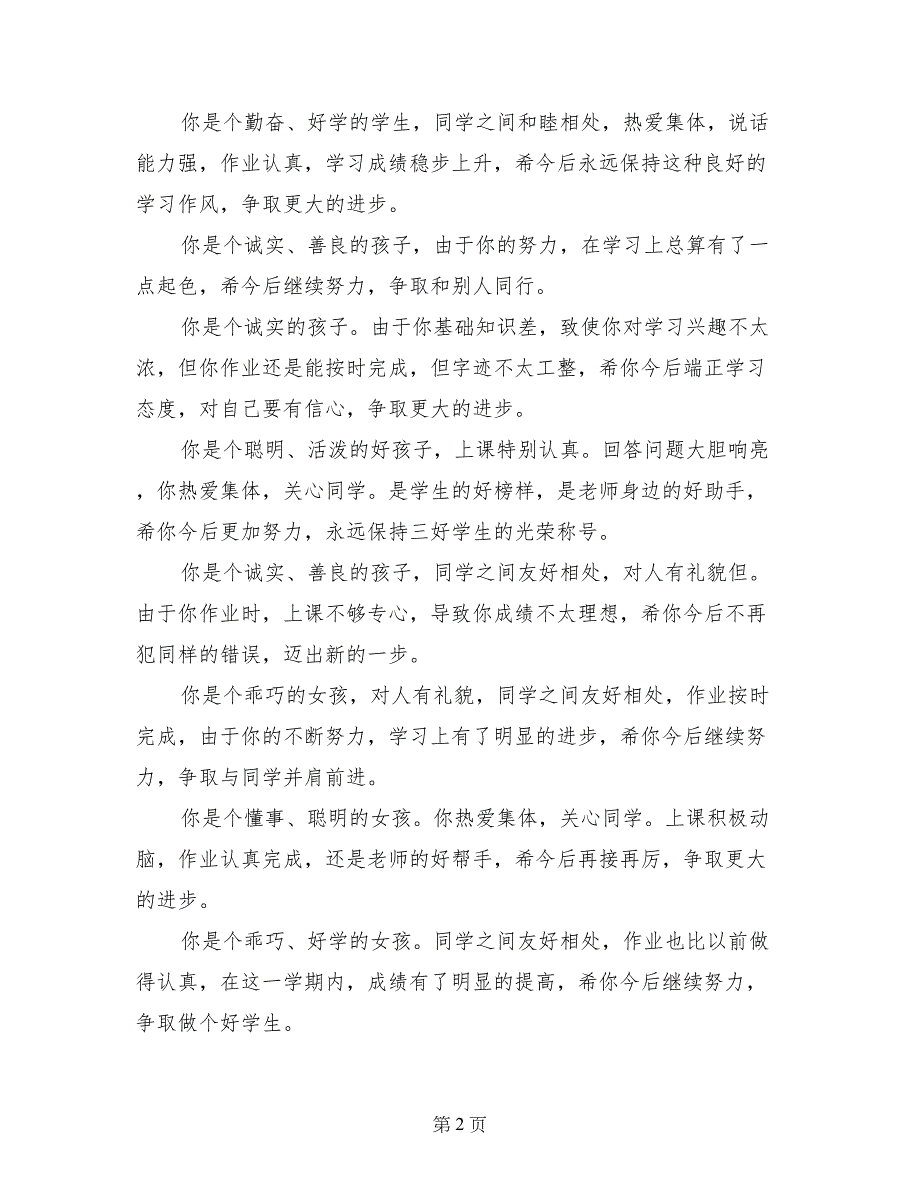 你是个勤奋、好学的学生，同学之间和睦相处，热爱集体，说话
能力强，作业认真，学习成绩稳步上升，希今后永远保持这种良好的
学习作风，争取更大的进步。
你是个诚实、善良的孩子，由于你的努力，在学习上总算有了一
点起色，希今后继续努力，争取和别人同行。
你是个诚实的孩子。由于你基础知识差，致使你对学习兴趣不太
浓，但你作业还是能按时完成，但字迹不太工整，希你今后端正学习
态度，对自己要有信心，争取更大的进步。
你是个聪明、活泼的好孩子，上课特别认真。回答问题大胆响亮
，你热爱集体，关心同学。是学生的好榜样，是老师身边的好助手，
希你今后更加努力，永远保持三好学生的光荣称号。
你是个诚实、善良的孩子，同学之间友好相处，对人有礼貌但。
由于你作业时，上课不够专心，导致你成绩不太理想，希你今后不再
犯同样的错误，迈出新的一步。
你是个乖巧的女孩，对人有礼貌，同学之间友好相处，作业按时
完成，由于你的不断努力，学习上有了明显的进步，希你今后继续努
力，争取与同学并肩前进。
你是个懂事、聪明的女孩。你热爱集体，关心同学。上课积极动
脑，作业认真完成，还是老师的好帮手，希今后再接再厉，争取更大
的进步。
你是个乖巧、好学的女孩。同学之间友好相处，作业也比以前做
得认真，在这一学期内，成绩有了明显的提高，希你今后继续努力，
争取做个好学生。
第 2 页